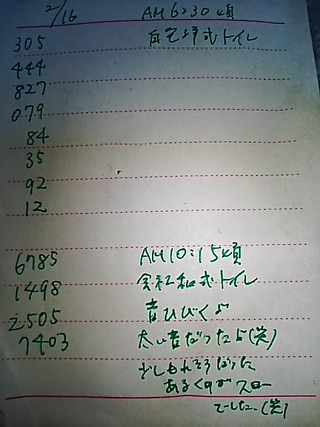 2/16 AM6:30頃
305 自宅洋式トイレ
444
827
079
84
35
92
12
6785 AM10:15頃
1498 会社和式トイレ
2505 音ひびくよ
7403 太い音だったよ(笑)
少しもれそうだった
あるくのがスロー
でした(笑)